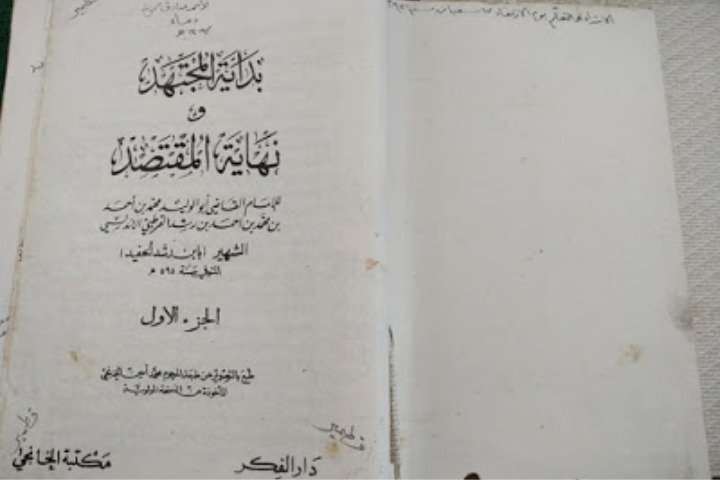 بداية المجتهد
و
نهاية المقتصد
للإمام القاضي أبو الوليد محمد بن أحمد
بن محمد بن احمد بن رشد القرطبي الاندلسي
الشهير (بابن رشد الحفيد)
المتوفى سنة ٥٩٥ هـ
الجزء الاول
طبع بالتصوير عن طبعة المرحوم محمد أمين الخانجي
المأخوذة عن النسخة المولوية
قطمير
قطمير
دار الفكر
مكتبة الخانجي